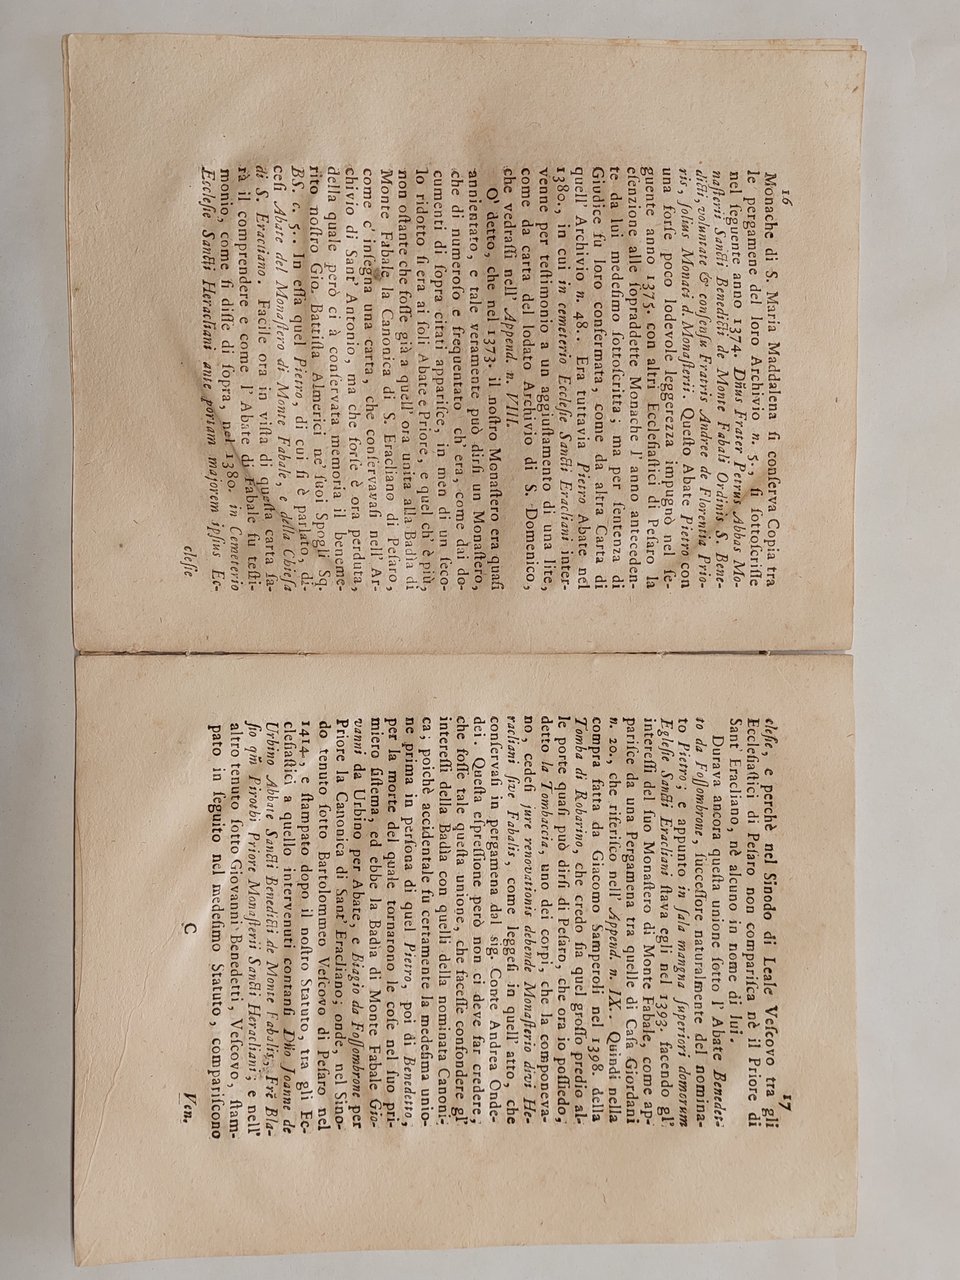 16
Monache di S. Maria Maddalena ſi conſerva Copia tra
le pergamene del loro Archivio n. 5., ſi ſottoſcriſſe
nel ſeguente anno 1374. Dñus Frater Petrus Abbas Mo-
naſterii Sancti Benedicti de Monte Fabali Ordinis S. Bene-
dicti, voluntate & conſenſu Fratris Andree de Florentia Prio-
ris, ſolius Monaci d. Monaſterii. Queſto Abate Pietro con
una forſe poco lodevole leggerezza impugnò nel ſe-
guente anno 1375. con altri Eccleſiaſtici di Peſaro la
eſenzione alle ſopraddette Monache l' anno anteceden-
te da lui medeſimo ſottoſcritta; ma per ſentenza di
Giudice fu loro confermata, come da altra Carta di
quell' Archivio n. 48.. Era tuttavia Pietro Abate nel
1380., in cui in cemeterio Eccleſie Sancti Eracliani inter-
venne per teſtimonio a un aggiuſtamento di una lite,
come da carta del lodato Archivio di S. Domenico,
che vedraſſi nell' Append. n. VIII.
O' detto, che nel 1373. il noſtro Monaſtero era quaſi
annientato, e tale veramente può dirſi un Monaſtero,
che di numeroſo e frequentato ch' era, come dai do-
cumenti di ſopra citati appariſce, in men di un ſeco-
lo ridotto ſi era ai ſoli Abate e Priore, e quel ch' è più,
non oſtante che foſſe già a quell' ora unita alla Badìa di
Monte Fabale la Canonica di S. Eracliano di Peſaro,
come c' inſegna una carta, che conſervavaſi nell' Ar-
chivio di Sant' Antonio, ma che forſe è ora perduta,
della quale però ci à conſervata memoria il beneme-
rito noſtro Gio. Battiſta Almerici ne' ſuoi Spogli Sq.
BS. c. 5.. In eſſa quel Pietro, di cui ſi è parlato, di-
ceſi Abate del Monaſtero di Monte Fabale, e della Chieſa
di S. Eracliano. Facile ora in viſta di queſta carta ſa-
rà il comprendere e come l' Abate di Fabale fu teſti-
monio, come ſi diſſe di ſopra, nel 1380. in Cemeterio
Eccleſie Sancti Heracliani ante portam majorem ipſius Ec-
cleſie
17
cleſie, e perchè nel Sinodo di Leale Veſcovo tra gli
Eccleſiaſtici di Peſaro non compariſca nè il Priore di
Sant' Eracliano, nè alcuno in nome di lui.
Durava ancora queſta unione ſotto l' Abate Benedet-
to da Foſſombrone, ſucceſſore naturalmente del nomina-
to Pietro; e appunto in ſala mangna ſuperiori domorum
Egleſie Sancti Eracliani ſtava egli nel 1393. facendo gl'
intereſſi del ſuo Monaſtero di Monte Fabale, come ap-
pariſce da una Pergamena tra quelle di Caſa Giordani
n. 20., che riferiſco nell' Append. n. IX.. Quindi nella
compra fatta da Giacomo Samperoli nel 1398. della
Tomba di Roberino, che credo ſia quel groſſo predio al-
le porte quaſi può dirſi di Peſaro, che ora io poſſiedo,
detto la Tombaccia, uno dei corpi, che la componeva-
no, cedeſi jure renovationis debende Monaſterio divi He-
racliani ſive Fabalis, come leggeſi in quell' atto, che
conſervaſi in pergamena dal ſig. Conte Andrea Onde-
dei. Queſta eſpreſſione però non ci deve far credere,
che foſſe tale queſta unione, che faceſſe confondere gl'
intereſſi della Badìa con quelli della nominata Canoni-
ca; poichè accidentale fu certamente la medeſima unio-
ne prima in perſona di quel Pietro, poi di Benedetto,
per la morte del quale tornarono le coſe nel ſuo pri-
miero ſiſtema, ed ebbe la Badìa di Monte Fabale Gio-
vanni da Urbino per Abate, e Biagio da Foſſombrone per
Priore la Canonica di Sant' Eracliano; onde, nel Sino-
do tenuto ſotto Bartolommeo Veſcovo di Peſaro nel
1414., e ſtampato dopo il noſtro Statuto, tra gli Ec-
cleſiaſtici a quello intervenuti contanſi Dño Joanne de
Urbino Abbate Sancti Benedicti de Monte Fabalis, Frē Bla-
ſio qm̃ Pirotbi Priore Monaſterii Sancti Heracliani; e nell'
altro tenuto ſotto Giovanni Benedetti, Veſcovo, ſtam-
pato in ſeguito nel medeſimo Statuto, compariſcono
C
Ven.